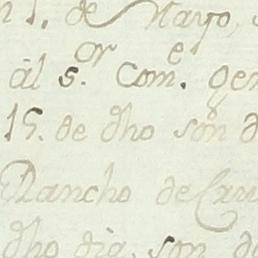 1. de Mayo,
ál S.or Com.e gen
15. de dho son d
Rancho de Cru
dho dia, son de